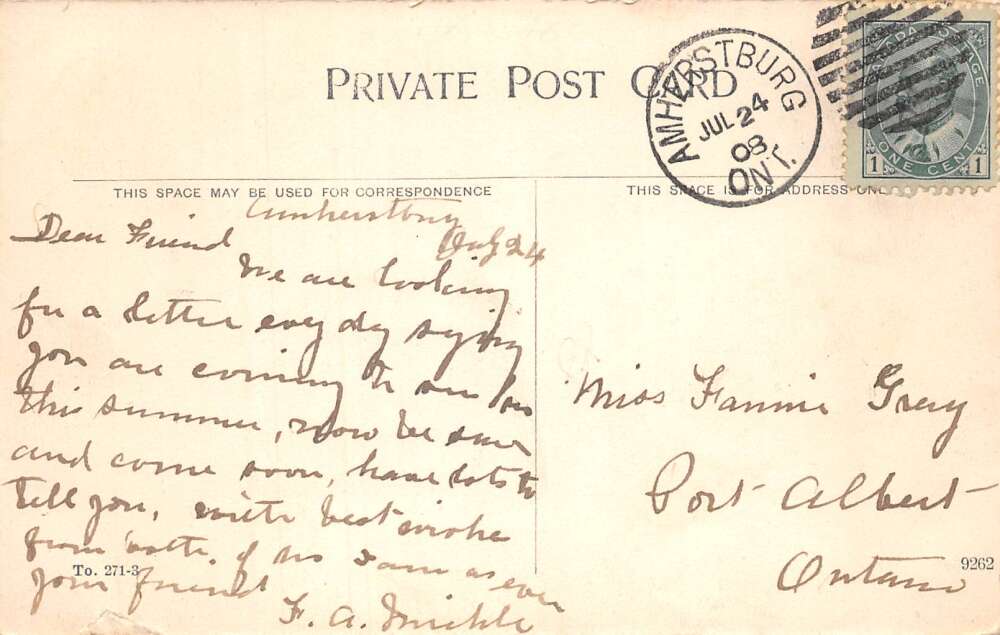 PRIVATE POST CARD
AMHERSTBURG
JUL 24
08
ONT.
CANADA POSTAGE
1 ONE CENT 1
THIS SPACE MAY BE USED FOR CORRESPONDENCE
THIS SPACE IS FOR ADDRESS ONLY
Amherstburg
July 24
Dear Friend
We are looking
for a letter every day saying
you are coming to see us
this summer, now be sure
and come soon, have lots to
tell you, with best wishes
from both of us I am as ever
your friend
F. A.
Miss Fannie Grey
Port Albert
Ontario
To. 271-3
9262